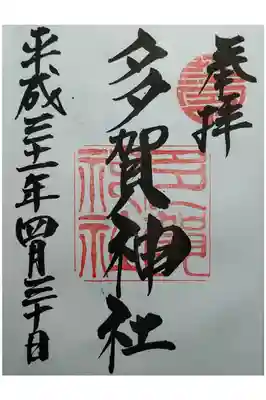 奉拝
多賀神社
平成三十一年四月三十日
多賀
神社